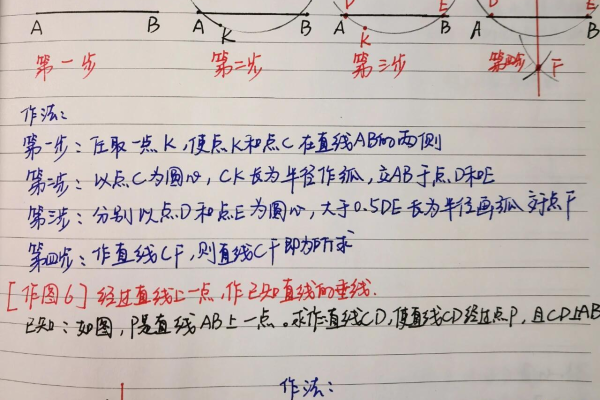 A B A K B A D K E B A D E B F
第一步 第二步 第三步 第四步
作法:
第一步:任取一点K,使点K和点C在直线AB的两侧
第二步:以点C为圆心,CK长为半径作弧,交AB于点D和E
第三步:分别以点D和点E为圆心,大于0.5DE长为半径画弧交于点F
第四步:作直线CF,则直线CF即为所求
[作图6]经过直线上一点,作已知直线的垂线.
已知:如图,P是直线AB上一点。求作:直线CD,使直线CD经过点P,且CD⊥AB
作法: